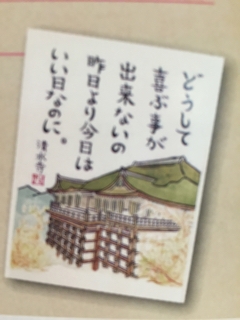 どうして
喜ぶ事が
出来ないの
昨日より今日は
いい日なのに。
清水寺